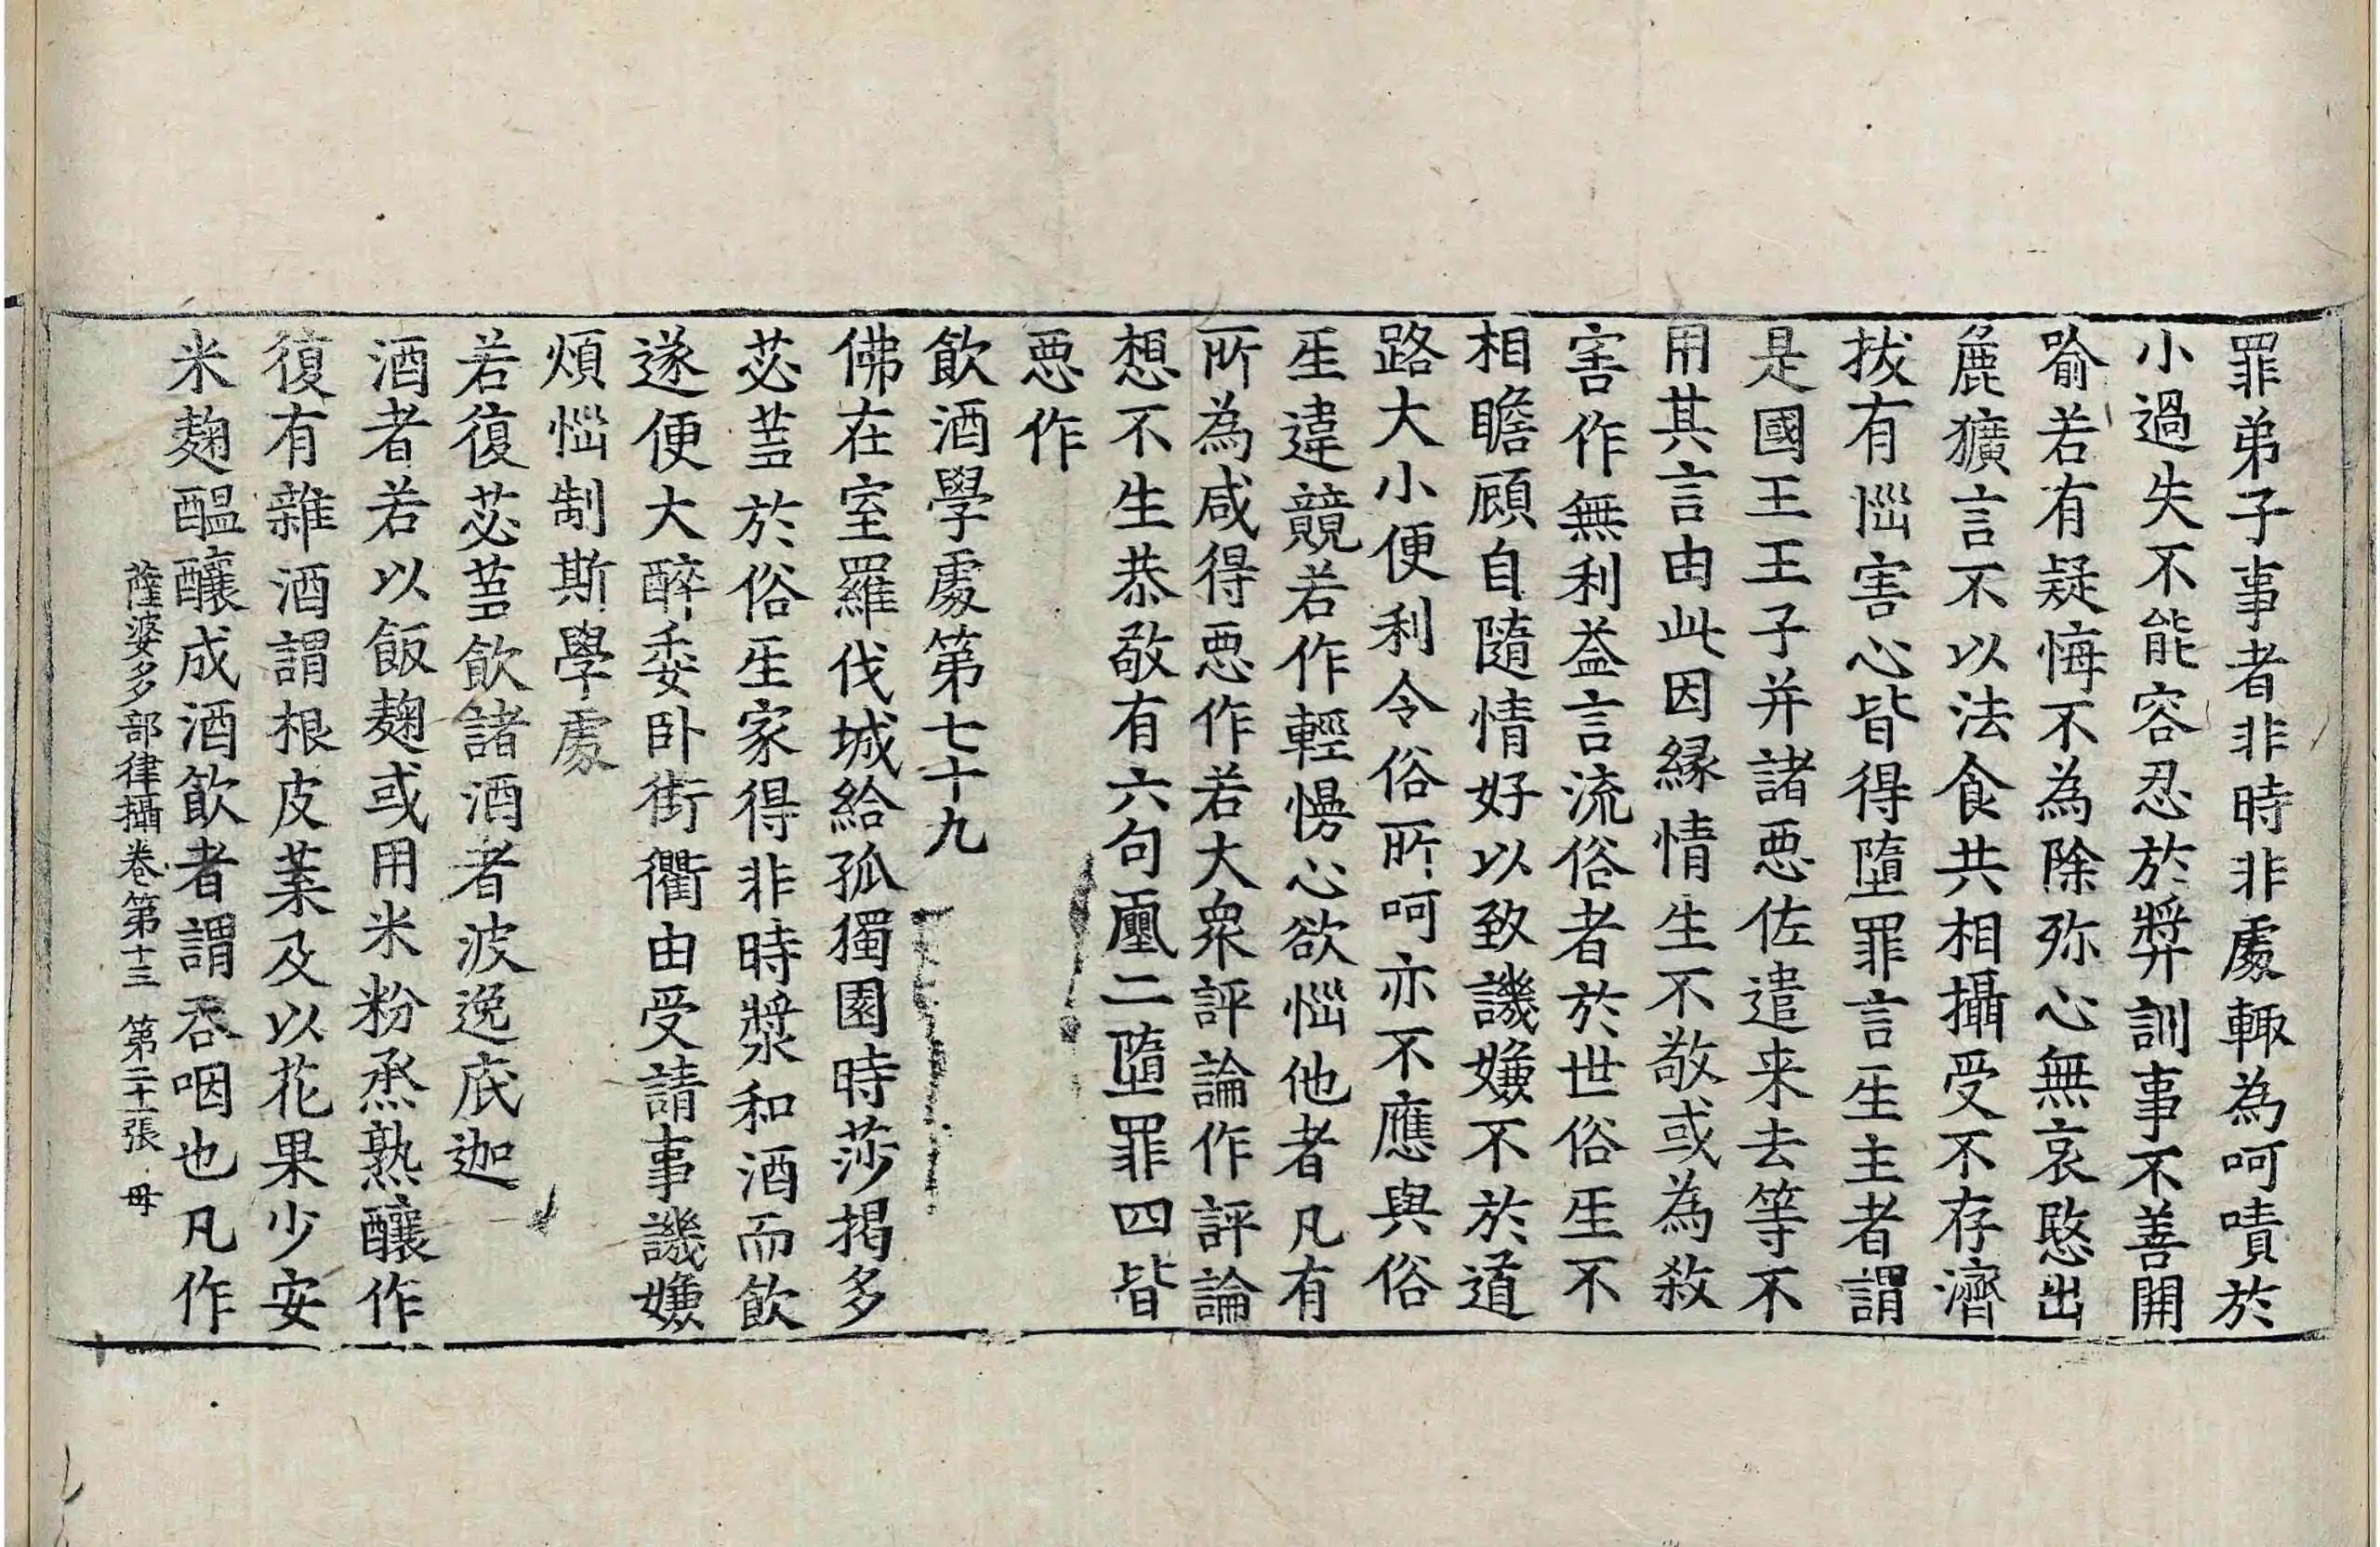 罪弟子事者非時非處輙為呵嘖於
小過失不能容忍於弊訓事不善開
喻若有疑悔不為除殄心無哀愍出
麁獷言不以法食共相攝受不存濟
拔有惱害心皆得墮罪言𤯔主者謂
是國王王子并諸惡佐遣来去等不
用其言由此因縁情生不敬或為敘
害作無利益言流俗者於世俗𤯔不
相瞻顧自隨情好以致譏嫌不於道
路大小便利令俗所呵亦不應與俗
𤯔違競若作輕慢心欲惱他者凡有
所為咸得惡作若大衆評論作評論
想不生恭敬有六句𠪨二墮罪四皆
惡作
飲酒學處第七十九
佛在室羅伐城給孤獨園時莎揭多
苾蒭於俗𤯔家得非時漿和酒而飲
遂便大醉委卧街衢由受請事譏嫌
煩惱制斯學處
若復苾蒭飲諸酒者波逸底迦
酒者若以飯麹或用米粉烝熟釀作
復有雜酒謂根皮葉及以花果少安
米麹醞釀成酒飲者謂吞咽也凡作
薩婆多部律攝卷第十三　第二十一張　毋